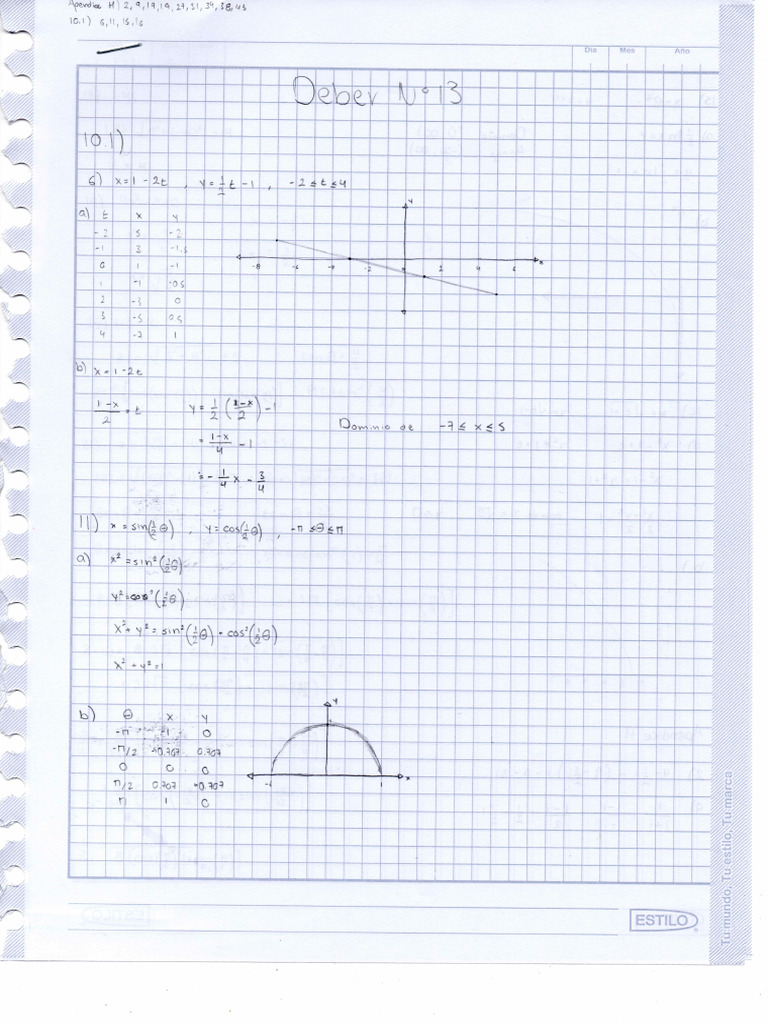 Apendice H) 2, 9, 17, 19, 29, 31, 34, 38, 45
10.1) 6, 11, 15, 16
Dia Mes Año
Deber N° 13
10.1)
6) x = 1 - 2t , y = 1/2 t - 1 , -2 ≤ t ≤ 4
a) t x y
-2 5 -2
-1 3 -1.5
0 1 -1
1 -1 -0.5
2 -3 0
3 -5 0.5
4 -7 1
y
-8 -6 -4 -2 0 2 4 6 x
b) x = 1 - 2t
(1-x)/2 = t y = 1/2 ((1-x)/2) - 1
= (1-x)/4 - 1
= -1/4 x - 3/4
Dominio de -7 ≤ x ≤ 5
11) x = sin(1/2 θ) , y = cos(1/2 θ) , -π ≤ θ ≤ π
a) x² = sin²(1/2 θ)
y² = cos²(1/2 θ)
x² + y² = sin²(1/2 θ) + cos²(1/2 θ)
x² + y² = 1
b) θ x y
-π -1 0
-π/2 -0.707 0.707
0 0 0
π/2 0.707 -0.707
π 1 0
y
-1 1 x
ESTILO
Tu mundo, Tu estilo, Tu marca